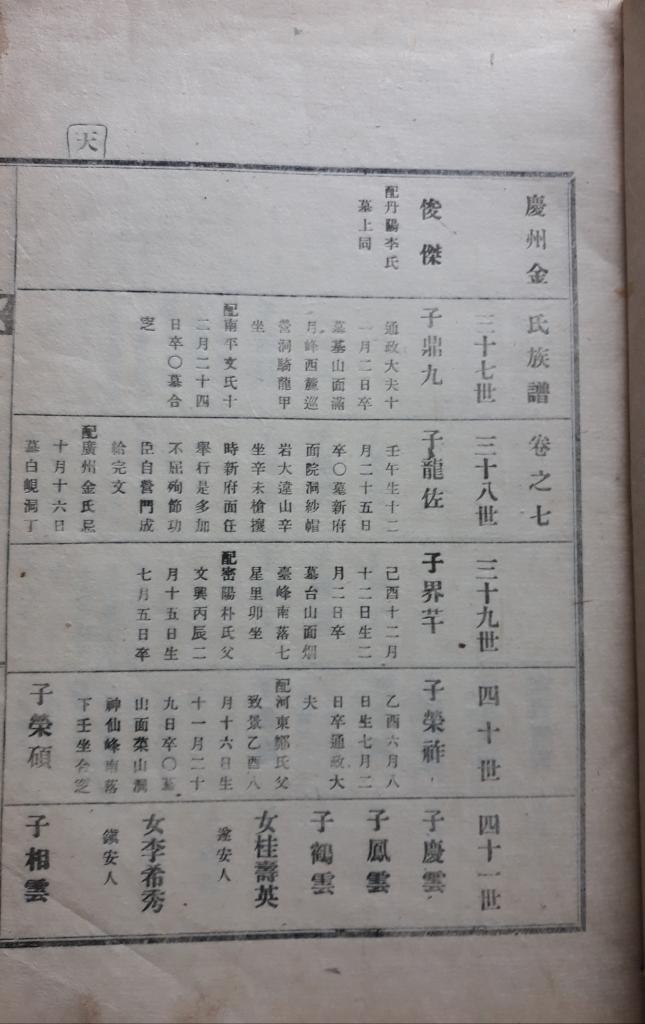 天
慶州金氏族譜 卷之七
俊傑
配丹陽李氏
墓上同
三十七世
子鼎九
通政大夫十
一月二日卒
墓墓山面滿
月峰西麓巡
營洞騎龍甲
坐
配南平文氏十
二月二十四
日卒〇墓合
窆
三十八世
子龍佐
壬午生十二
月二十五日
卒〇墓新府
面院洞紗帽
岩大達山辛
坐辛未槍攘
時新府面任
擧行是多加
不屈殉節功
臣自營門成
給完文
配廣州金氏忌
十月十六日
墓白峴洞丁
三十九世
子界芊
己酉十二月
十二日生二
月二日卒
墓台山面烟
臺峰南落七
星里卯坐
配密陽朴氏父
文興丙辰二
月十五日生
七月五日卒
四十世
子榮祚
乙酉六月八
日生七月二
日卒通政大
夫
配河東鄭氏父
致景乙酉八
月十六日生
十一月二十
九日卒〇墓
山面菜山洞
神仙峰南落
下壬坐合窆
子榮碩
四十一世
子慶雲
子鳳雲
子鶴雲
女桂壽英
遂安人
女李希秀
鎭安人
子相雲